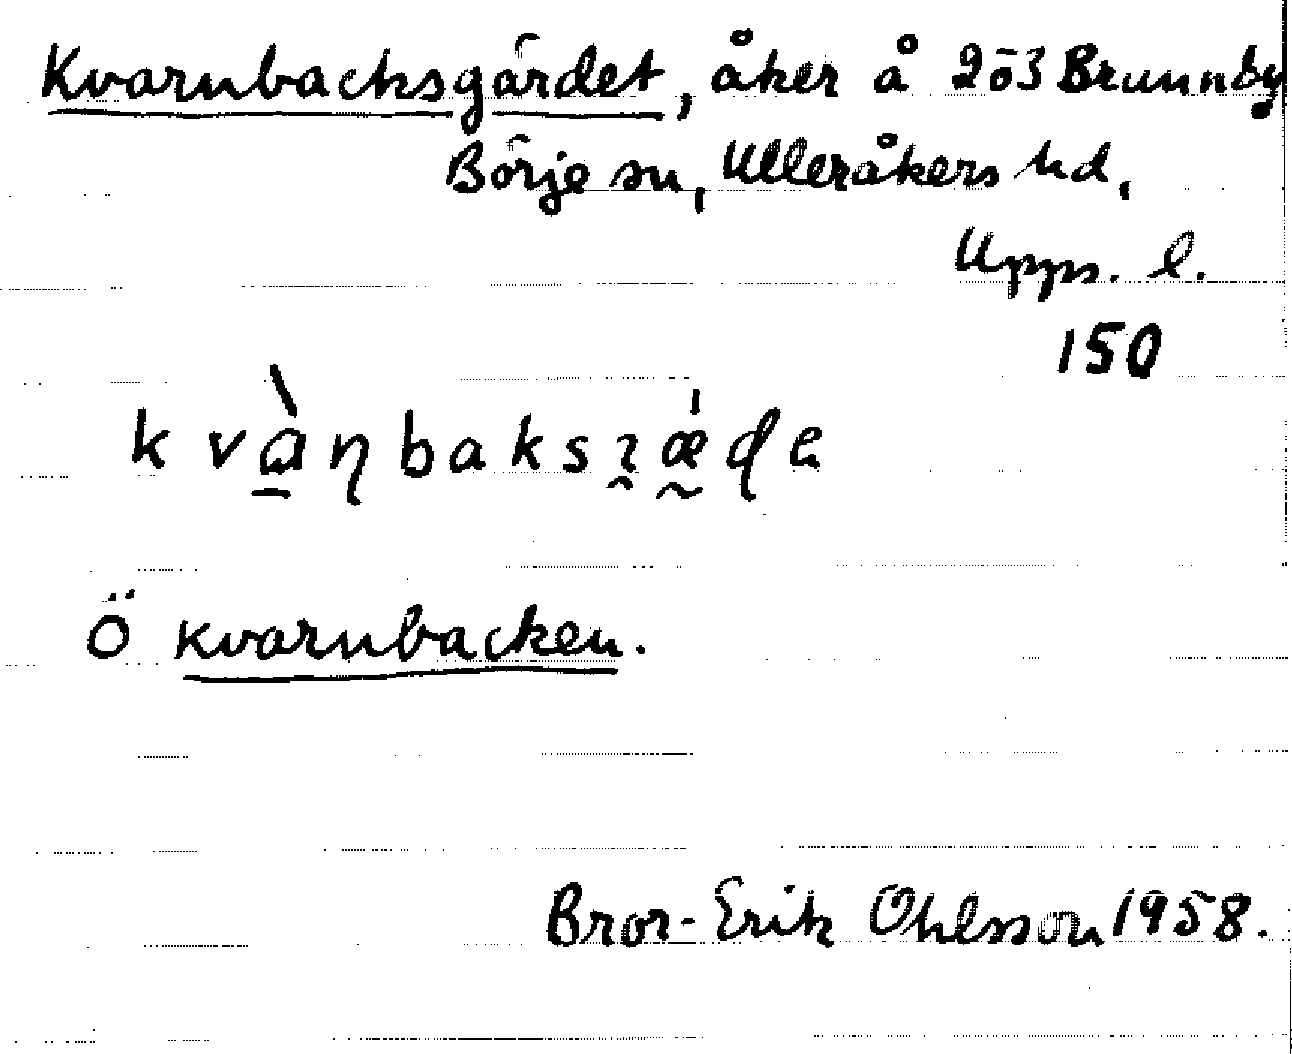 Kvarnbacksgärdet, åker å 2ö3 Brunnby
Börje sn, Ulleråkers hd,
Upps. l.
150
Ö Kvarnbacken.
Bror-Erik Ohlsson 1958.